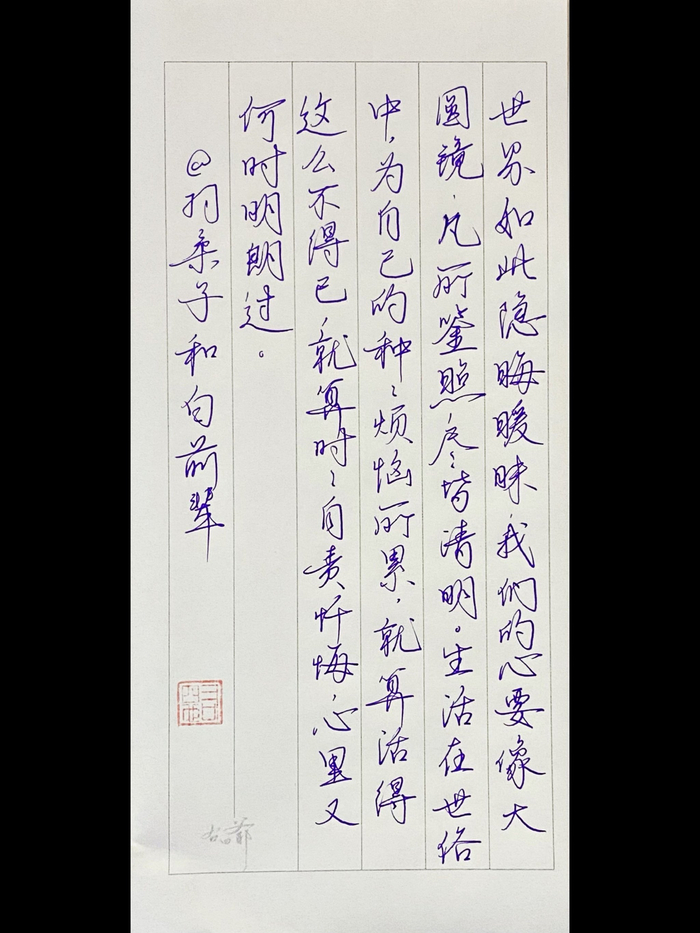 世界如此隐晦暧昧，我们的心要像大
圆镜，凡所鉴照，尽皆清明。生活在世俗
中，为自己的种种烦恼所累，就算活得
这么不得已，就算时时自责忏悔，心里又
何时明朗过。
@ 柔子和白前辈